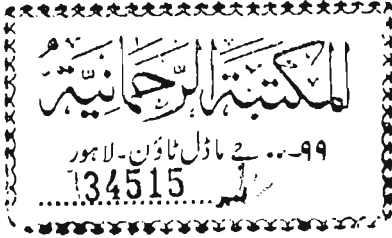 المکتبۃ الرحمانیۃ
۹۹۔۔۔ جے ماڈل ٹاؤن۔ لاہور
نمبر 34515